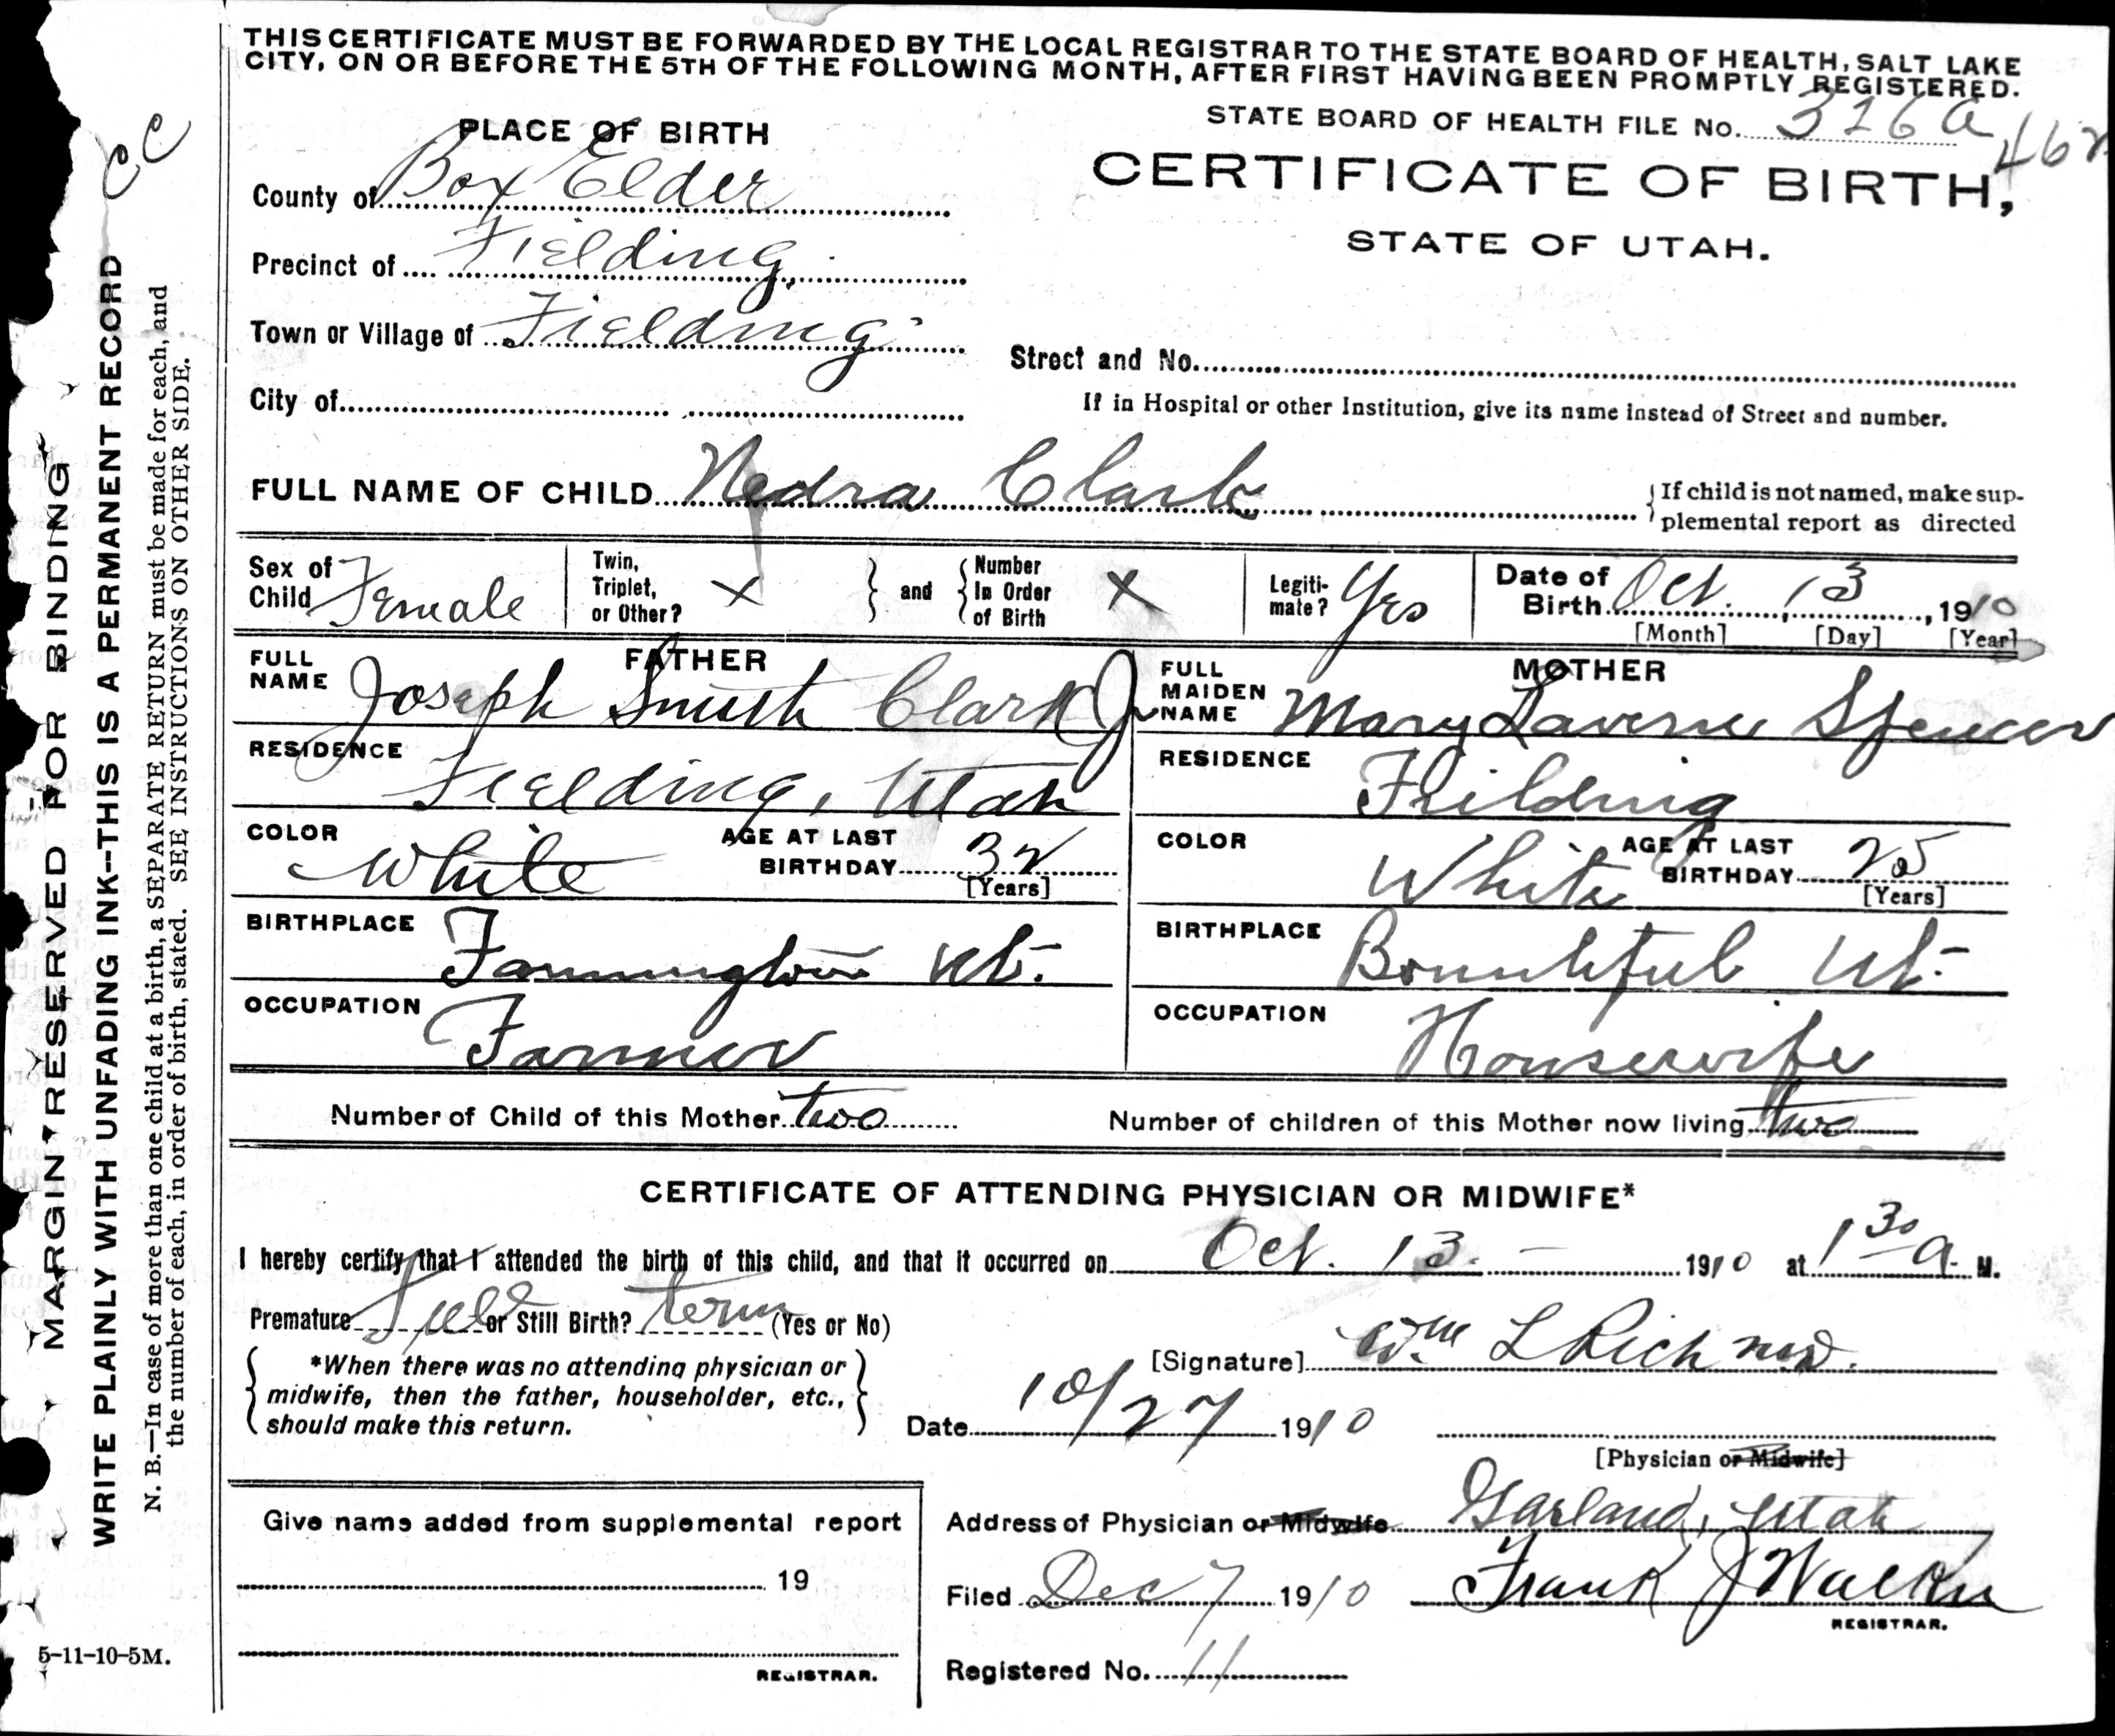 THIS CERTIFICATE MUST BE FORWARDED BY THE LOCAL REGISTRAR TO THE STATE BOARD OF HEALTH, SALT LAKE
CITY, ON OR BEFORE THE 5TH OF THE FOLLOWING MONTH, AFTER FIRST HAVING BEEN PROMPTLY REGISTERED.
STATE BOARD OF HEALTH FILE No. 326 a 462
CERTIFICATE OF BIRTH,
STATE OF UTAH.
CC
PLACE OF BIRTH
County of Box Elder
Precinct of Fielding
Town or Village of Fielding
City of
Street and No.
If in Hospital or other Institution, give its name instead of Street and number.
FULL NAME OF CHILD Nedra Clark
If child is not named, make sup-
plemental report as directed
Sex of Child Female
Twin, Triplet, or Other? X
and
Number In Order of Birth X
Legiti-mate? Yes
Date of Birth Oct. 13, 1910
[Month] [Day] [Year]
FATHER
FULL NAME Joseph Smith Clark Jr
RESIDENCE Fielding, Utah
COLOR White
AGE AT LAST BIRTHDAY 32
[Years]
BIRTHPLACE Farmington Ut.
OCCUPATION Farmer
MOTHER
FULL MAIDEN NAME Mary Laverne Spencer
RESIDENCE Feilding
COLOR White
AGE AT LAST BIRTHDAY 25
[Years]
BIRTHPLACE Bountiful Ut.
OCCUPATION Housewife
Number of Child of this Mother two
Number of children of this Mother now living two
CERTIFICATE OF ATTENDING PHYSICIAN OR MIDWIFE*
I hereby certify that I attended the birth of this child, and that it occurred on Oct. 13 1910 at 1 30 a. M.
Premature Full or Still Birth? term (Yes or No)
*When there was no attending physician or
midwife, then the father, householder, etc.,
should make this return.
[Signature] Wm L Rich M.D.
Date 10/27 1910
[Physician or Midwife]
Give name added from supplemental report
19
REGISTRAR.
Address of Physician or Midwife Garland, Utah
Filed Dec 7 1910 Frank J Walker
REGISTRAR.
Registered No. 11
MARGIN RESERVED FOR BINDING
WRITE PLAINLY WITH UNFADING INK--THIS IS A PERMANENT RECORD
N. B.—In case of more than one child at a birth, a SEPARATE RETURN must be made for each, and
the number of each, in order of birth, stated. SEE INSTRUCTIONS ON OTHER SIDE.
5-11-10-5M.